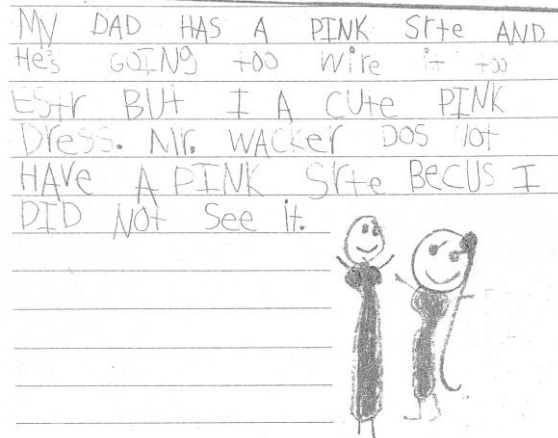 MY DAD HAS A PINK Srte AND
He's GOING too wire it too
EStr BUt I A CUte PINK
Dress. Mr. WACKer DOS Not
HAVe A PINK Srte BecUS I
DID NOt See it.